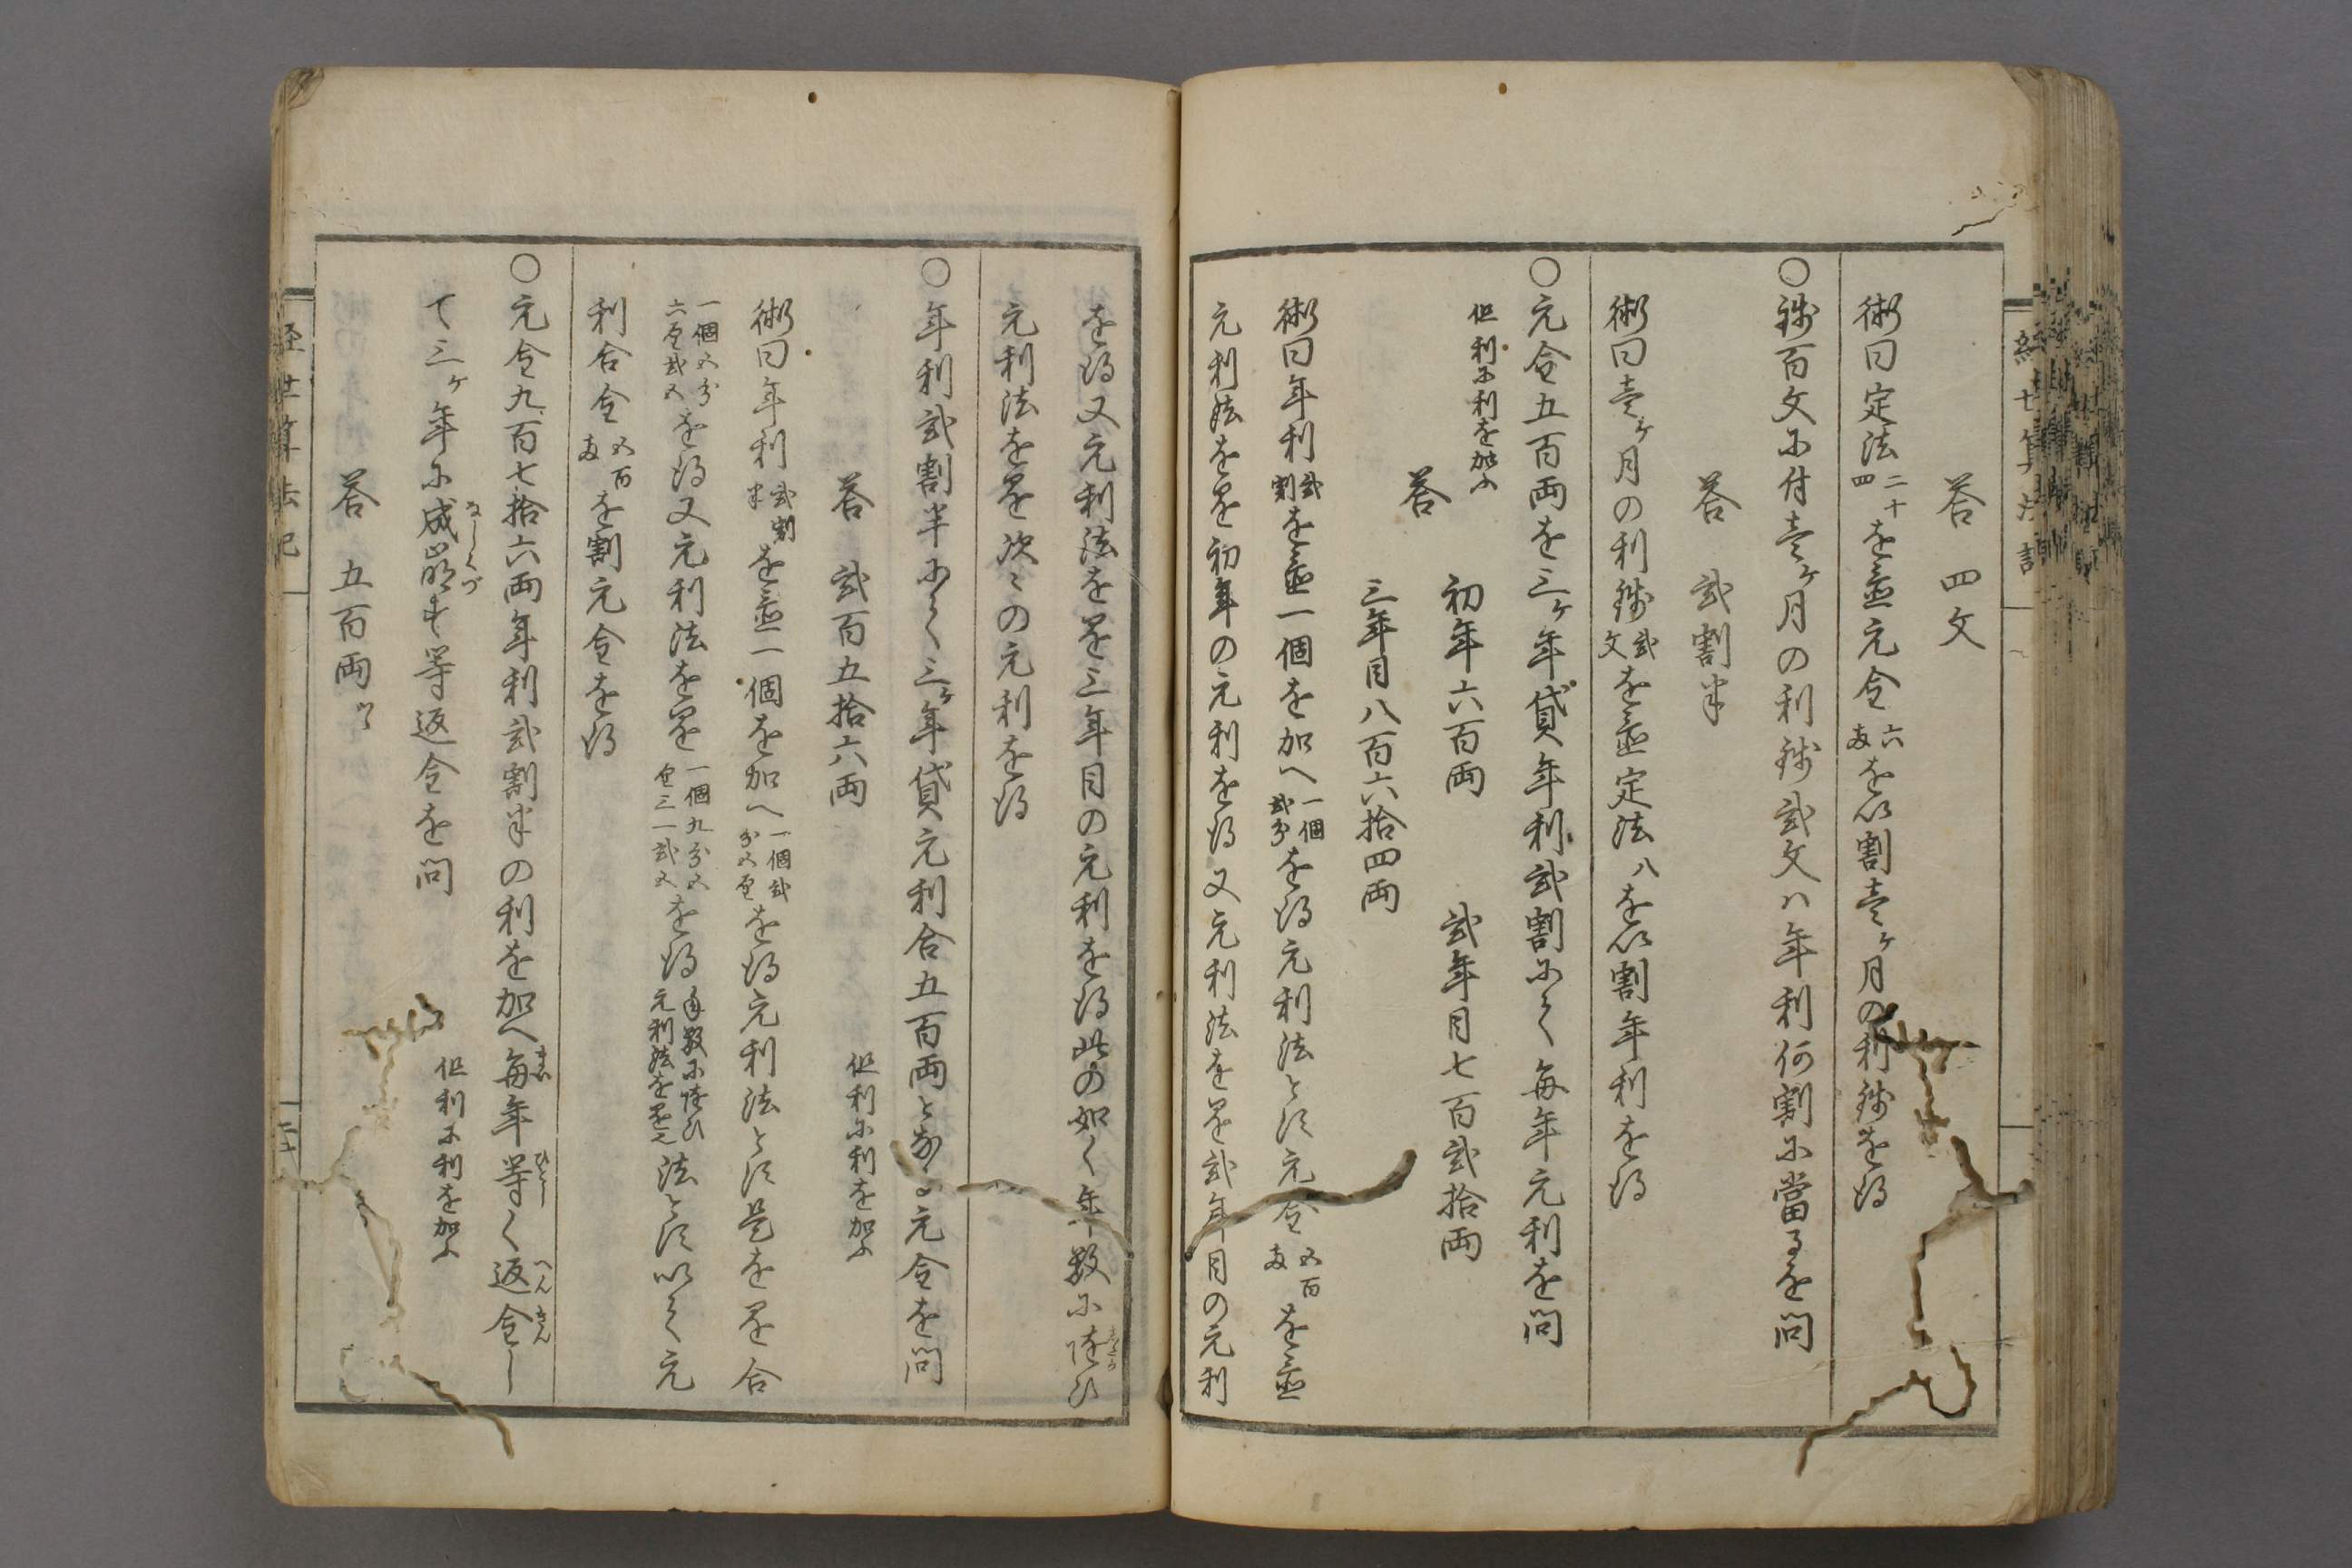 答 四文
術曰定法二十四を置元金六両を以割壱ヶ月の利銭を得
○銭百文に付壱ヶ月の利銭弐文ハ年利何割に當るを問
答 弐割半
術曰壱ヶ月の利銭弐文を置定法八を以割年利を得
○元金五百両を三ヶ年貸年利弐割にて毎年元利を問
但利に利を加ふ
答 初年六百両 弐年目七百弐拾両
三年目八百六拾四両
術曰年利弐割を置一個を加へ一個弐分を得元利法とす元金五百両を置
元利法を乗初年の元利を得又元利法を乗弐年目の元利
を得又元利法を乗三年目の元利を得此の如く年数に随ひ
元利法を乗次々の元利を得
○年利弐割半にて三ヶ年貸元利合五百両となる元金を問
但利に利を加ふ
答 弐百五拾六両
術曰年利弐割半を置一個を加へ一個弐分五厘を得元利法とす是を乗合
一個五分六厘弐五を得又元利法を乗一個九分五厘三一弐五を得年数に随ひ元利法を乗之法とす以て元
利合金五百両を割元金を得
○元金九百七拾六両年利弐割半の利を加へ毎年等く返金し
て三ヶ年に成崩す等返金を問
但利に利を加ふ
答 五百両ツヽ
経世算法記
二十